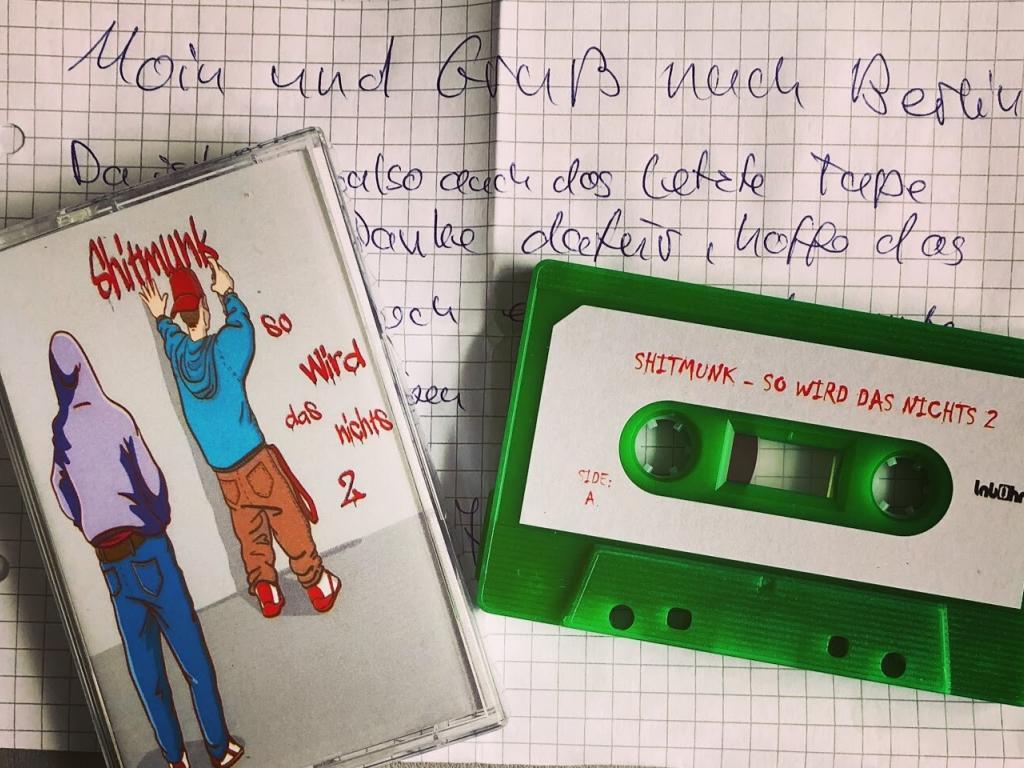 Moin und Gruß nach Berlin
also auch das letzte Tape
Danke dafür, hoffe das
Shitmunk
so
wird
das nichts
2
SHITMUNK - SO WIRD DAS NICHTS 2
SIDE:
A.